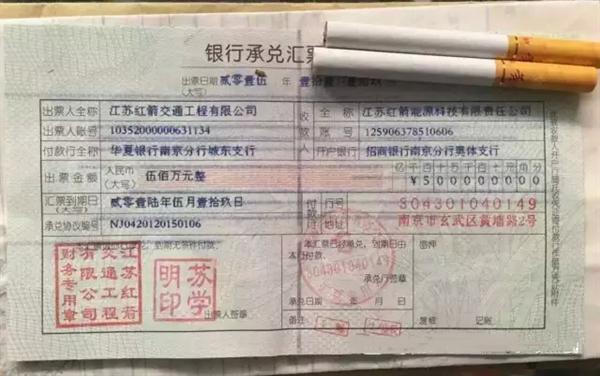 银行承兑汇票
出票日期
(大写)
贰零壹伍 年 壹拾壹 月 壹拾玖
出票人全称 江苏红箭交通工程有限公司
收 全 称 江苏红箭能源科技有限责任公司
出票人账号 10352000000631134
款 账 号 125906378510606
付款行全称 华夏银行南京分行城东支行
人 开户银行 招商银行南京分行奥体支行
出票金额 人民币
(大写)
伍佰万元整
亿千百十万千百十元角分
¥500000000
汇票到期日
(大写)
贰零壹陆年伍月壹拾玖日
付款行 行号 304301040149
承兑协议编号 NJ0420120150106
地址 南京市玄武区黄埔路2号
到期无条件付款
本汇票已经承兑,到期日由本
行付款。
密押
江苏红箭
交通工程
有限公司
财务专用章
苏学
明印
出票人签章
304301040149
承兑行签章
承兑日期 年 月 日
备注
复核 记账